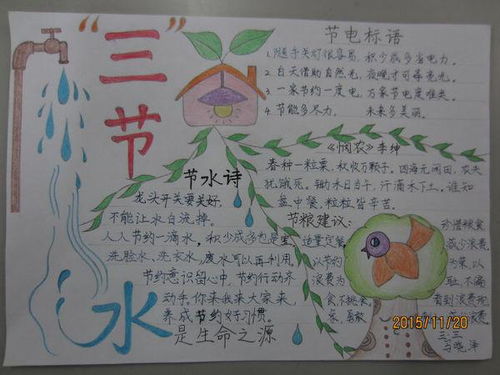 "三"节
节电标语
1.随手关灯很容易,积少成多省电力。
2.白天借助自然光,夜晚才可尋亮光。
3.一家节约一度电,万家节电度难关。
4.节能多尽力,未来多美丽。
《悯农》李绅
春种一粒粟,秋收万颗子。四海无闲田,农夫
犹饿死。锄禾日当午,汗滴禾下土。谁知
盘中餐,粒粒皆辛苦。
节水诗
龙头开关要关好,
不能让水白流掉。
人人节约一滴水,积少成多也是宝
洗脸水、洗衣水,废水可以再利用。
节约意识留心中,节约行动齐
动手,你来我来大家来,
养成节约好习惯。
水
是生命之源
节粮建议:
适量定餐
以节约
浪费为
食,不挑食
珍惜粮食
减少浪费
为荣,以
耻,不偏
看到浪费现
浪费
2015/11/20